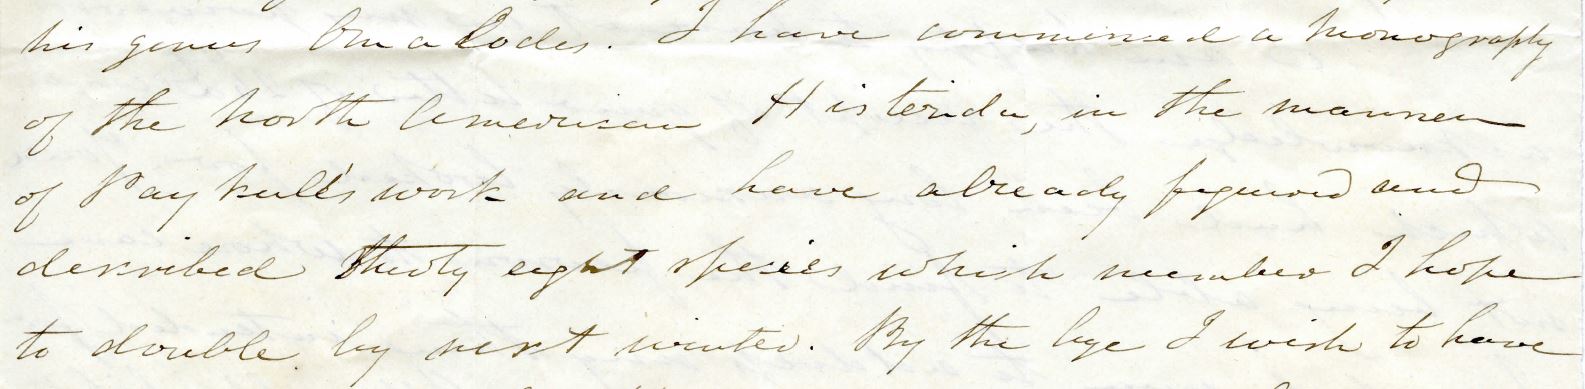 his genus Omalodes. I have commenced a monography
of the North American Histeridae, in the manner
of Paykull's work and have already figured and
described thirty eight species which number I hope
to double by next winter. By the bye I wish to have